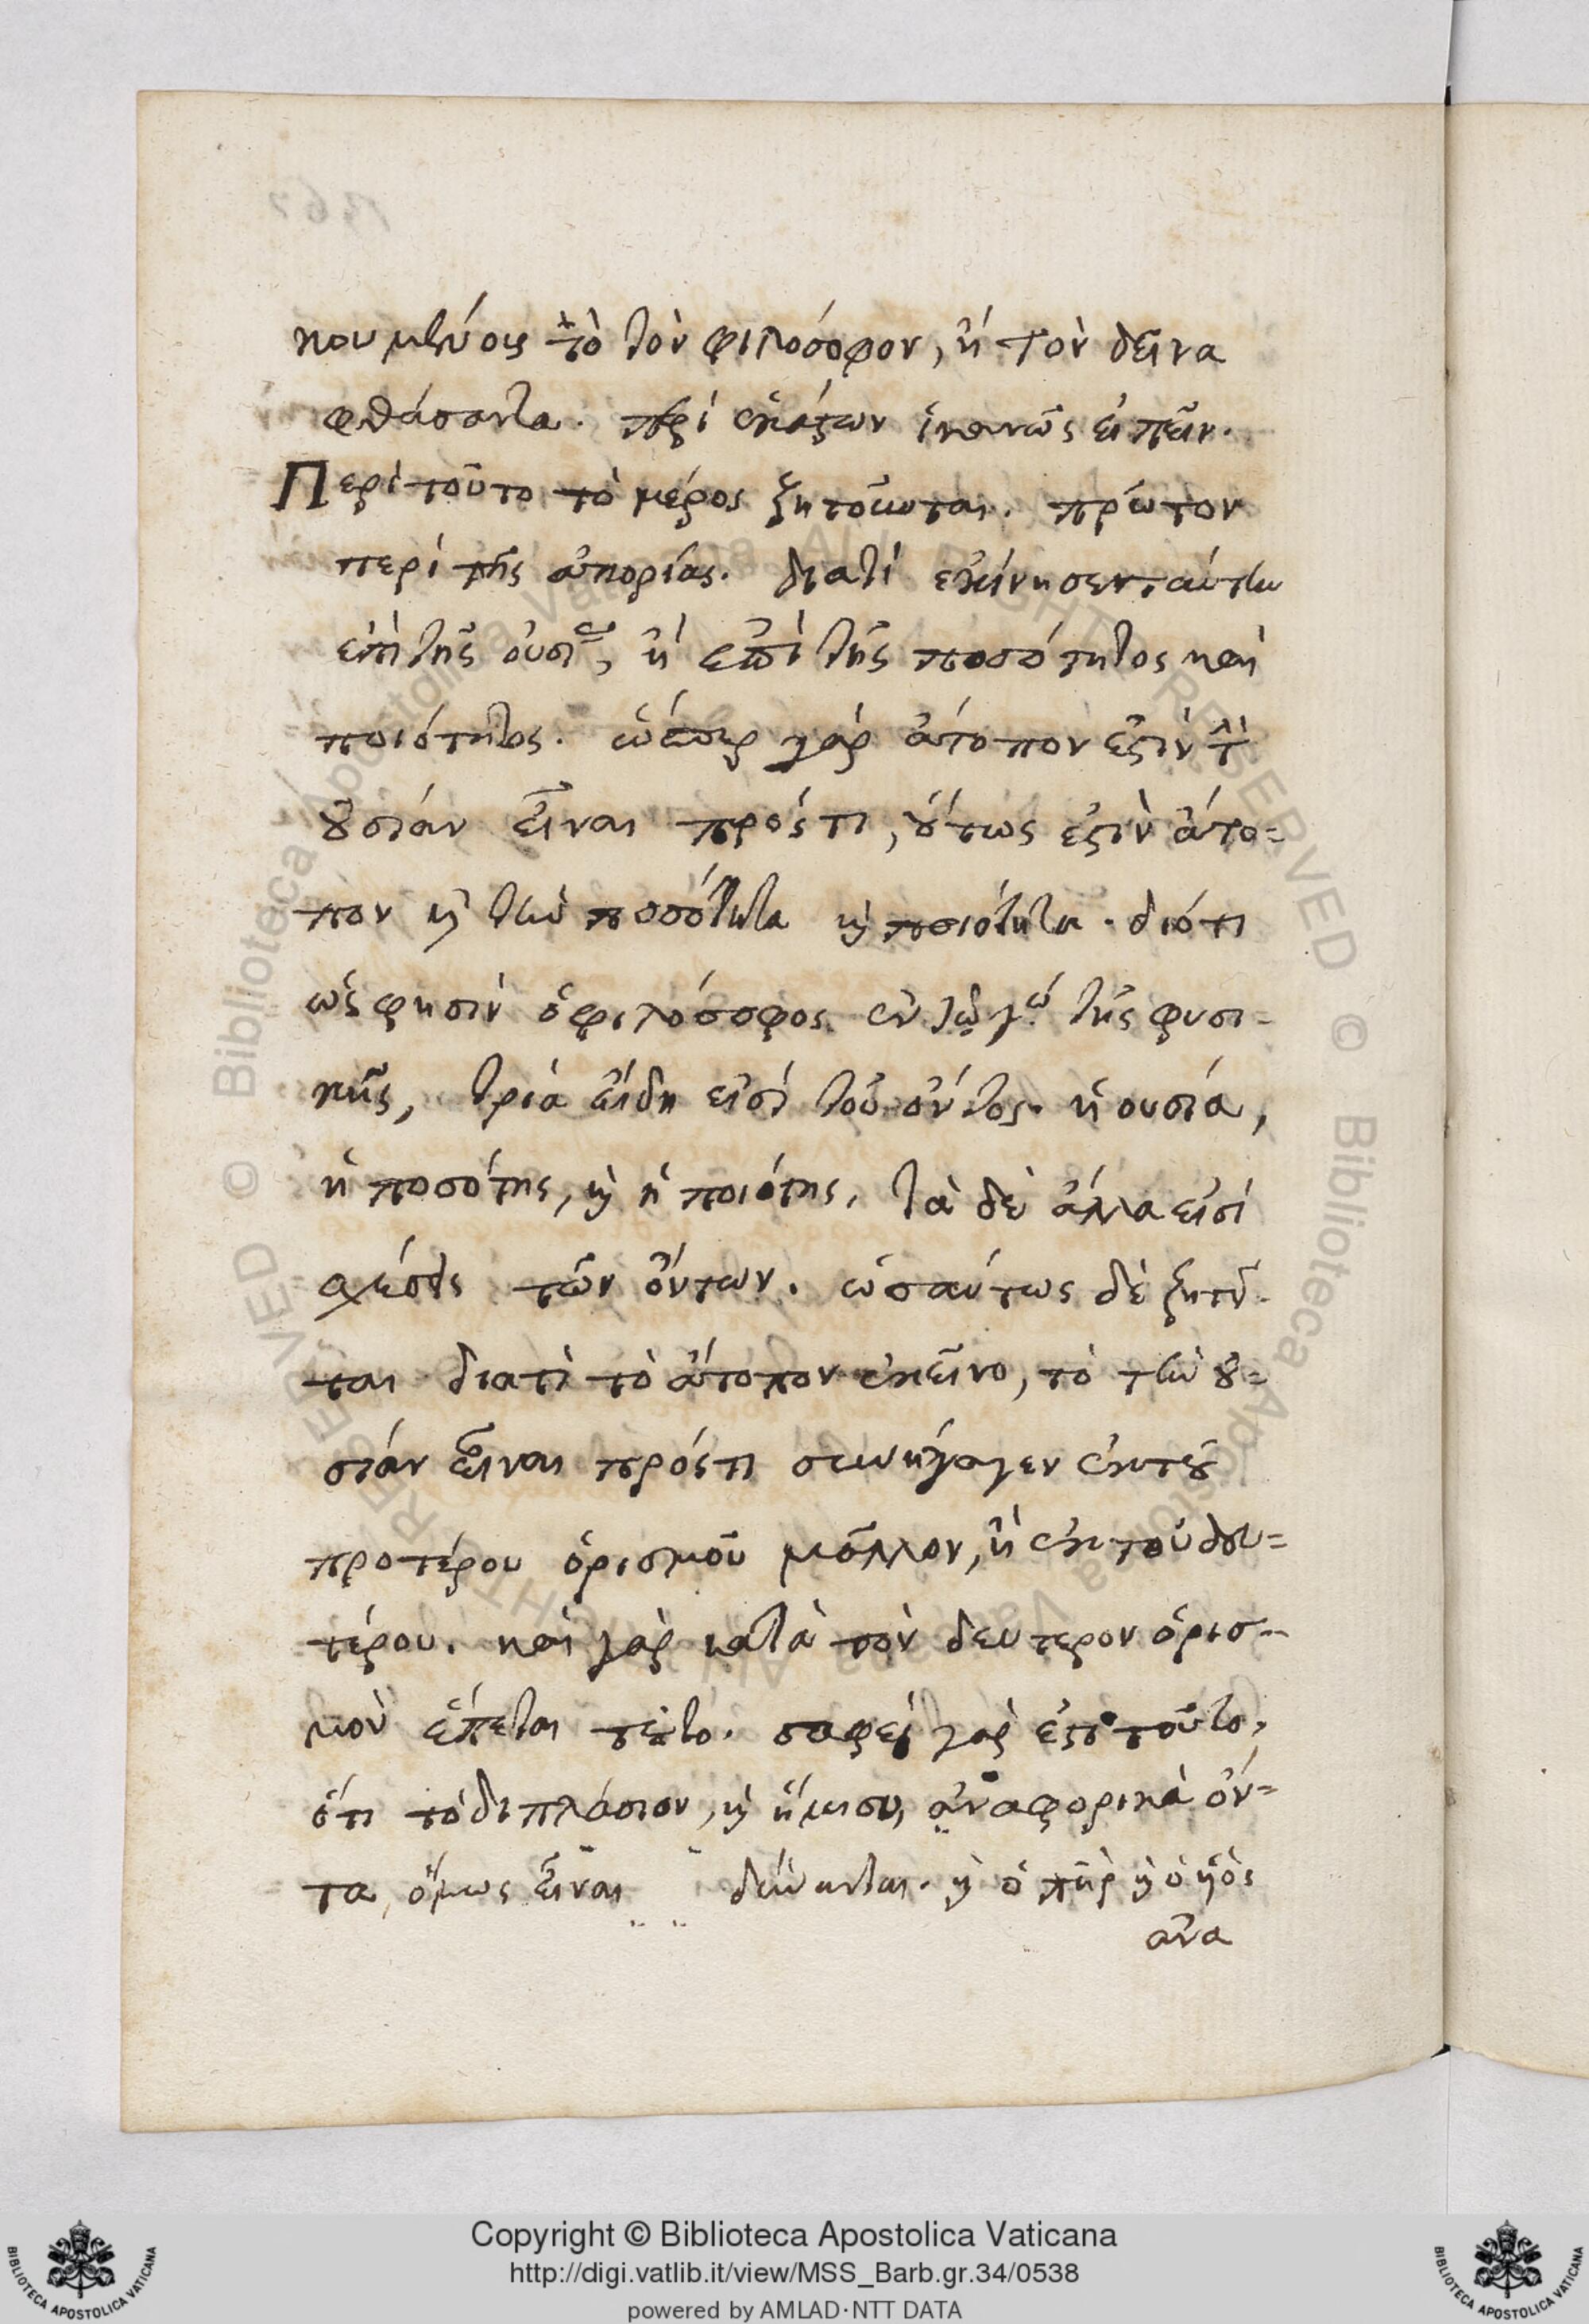 κουμένοις τὸ τὸν φιλόσοφον, ἢ τὸν δεῖνα
φθάσαντα. περὶ ἑκάστων ἱκανῶς εἰπεῖν.
Περὶ τοῦτο τὸ μέρος ζητοῦνται. πρῶτον
περὶ τῆς ἀπορίας. διατί ἐκίνησεν ταύτην
ἐπὶ τῆς οὐσίας, ἢ ἐπὶ τῆς ποσότητος καὶ
ποιότητος. ὥσπερ γὰρ ἄτοπόν ἐστιν τὴν
οὐσίαν εἶναι πρός τι, οὕτως ἐστὶν ἄτο=
πον καὶ τὴν ποσότητα καὶ ποιότητα. διότι
ὥς φησιν ὁ φιλόσοφος ἐν τῷ γ.ῳ τῆς φυσι=
κῆς, τρία εἴδη εἰσὶ τοῦ ὄντος. ἡ οὐσία,
ἡ ποσότης, καὶ ἡ ποιότης, τὰ δὲ ἄλλα εἰσὶ
σχέσεις τῶν ὄντων. ὡσαύτως δὲ ζητεῖ=
ται διατὶ τὸ ἄτοπον ἐκεῖνο, τὸ τὴν οὐ=
σίαν εἶναι πρός τι συνήγαγεν ἐκ τοῦ
προτέρου ὁρισμοῦ μᾶλλον, ἢ ἐκ τοῦ δευ=
τέρου. καὶ γὰρ κατὰ τὸν δεύτερον ὁρισ=
μὸν ἕπεται τοῦτο. σαφὲς γὰρ ἐστι τοῦτο,
ὅτι τὸ διπλάσιον, καὶ ἥμισυ, ἀναφορικὰ ὄν=
τα, ὅμως εἶναι δύνανται. καὶ ὁ πὴρ καὶ ὁ ὑὸς
ἀνα
Copyright © Biblioteca Apostolica Vaticana
http://digi.vatlib.it/view/MSS_Barb.gr.34/0538
powered by AMLAD·NTT DATA